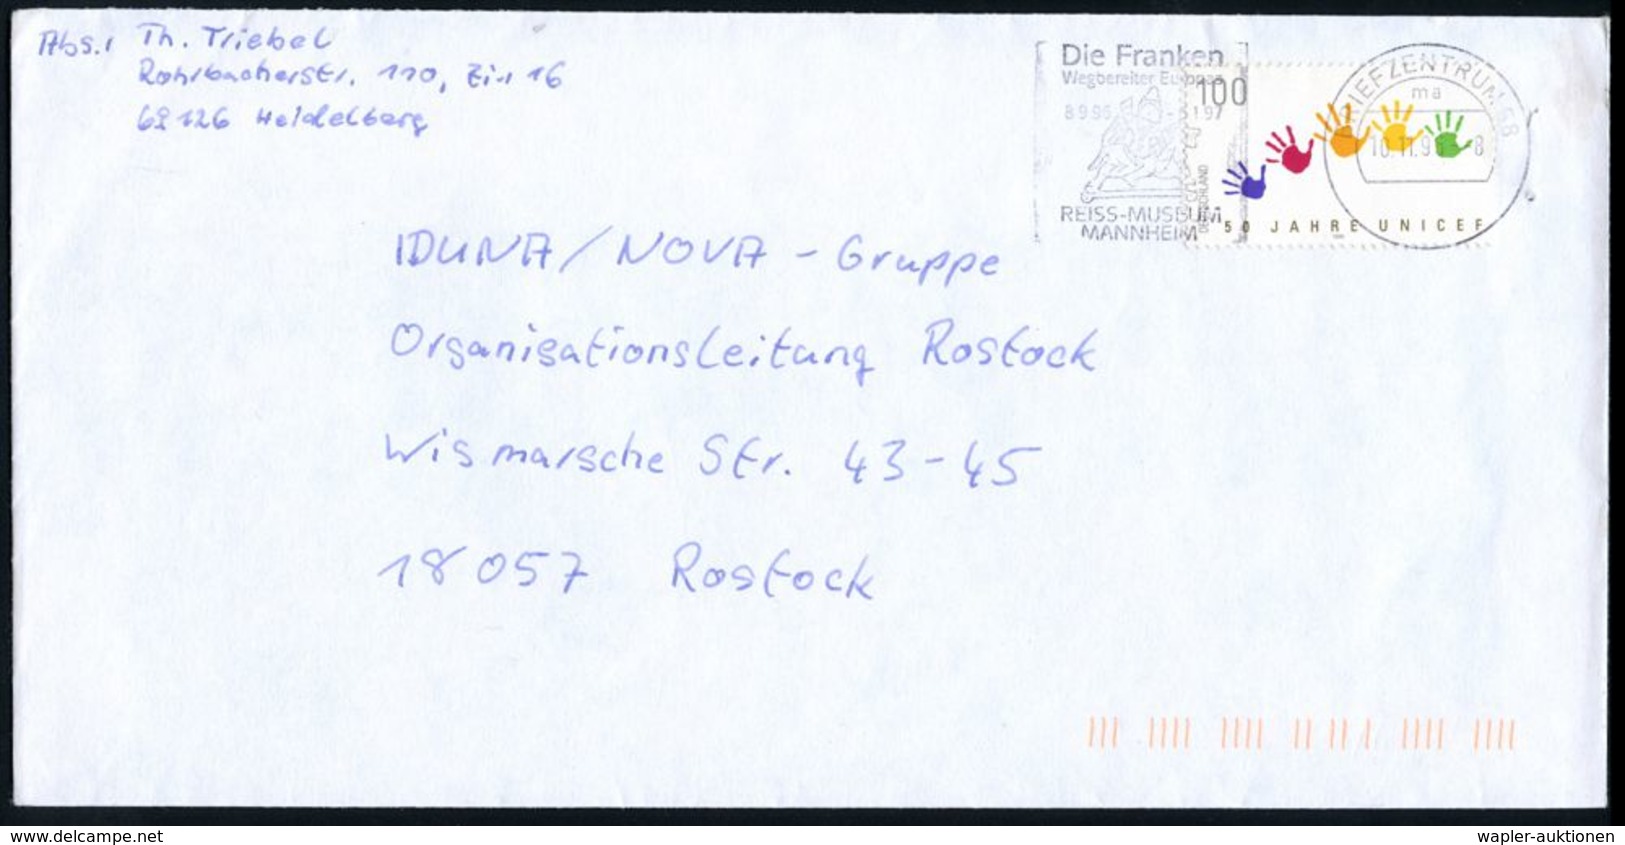 Abs.: Th. Triebel
Rohrbacherstr. 110, Zi. 16
69126 Heidelberg
Die Franken
Wegbereiter Europas
8 9 96 - 6 1 97
REISS-MUSEUM
MANNHEIM
100
DEUTSCHLAND
50 JAHRE UNICEF
BRIEFZENTRUM 68
ma
10.11.96 - 8
IDUNA / NOVA - Gruppe
Organisationsleitung Rostock
Wismarsche Str. 43-45
18057 Rostock
www.delcampe.net
wapler-auktionen